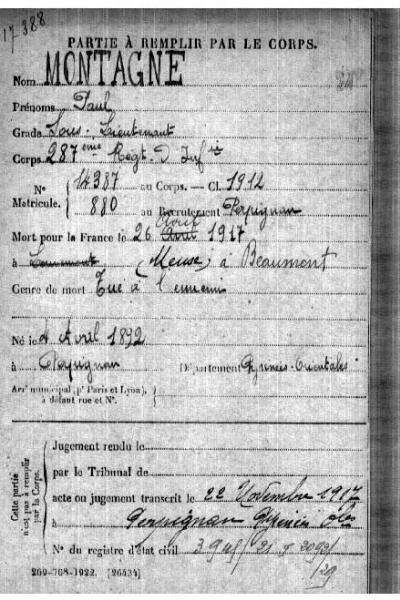 17.388
PARTIE À REMPLIR PAR LE CORPS.
Nom MONTAGNE
Prénoms Paul
Grade Sous-Lieutenant
Corps 287eme Régt. D'Infie
N° Matricule. { 14387 au Corps. — Cl. 1912
880 au Recrutement Perpignan
Août
Mort pour la France le 26 Avril 1917
à Louvemont (Meuse) à Beaumont
Genre de mort Tué à l'ennemi
Né le 4 Avril 1892
à Perpignan Département Pyrénées-Orientales
Arrt municipal (pr Paris et Lyon),
à défaut rue et N°.
Cette partie n'est pas à remplir par le Corps.
Jugement rendu le
par le Tribunal de
acte ou jugement transcrit le 22 Novembre 1917
à Perpignan Pyrénées Oles
N° du registre d'état civil
269-708-1922. [26434]